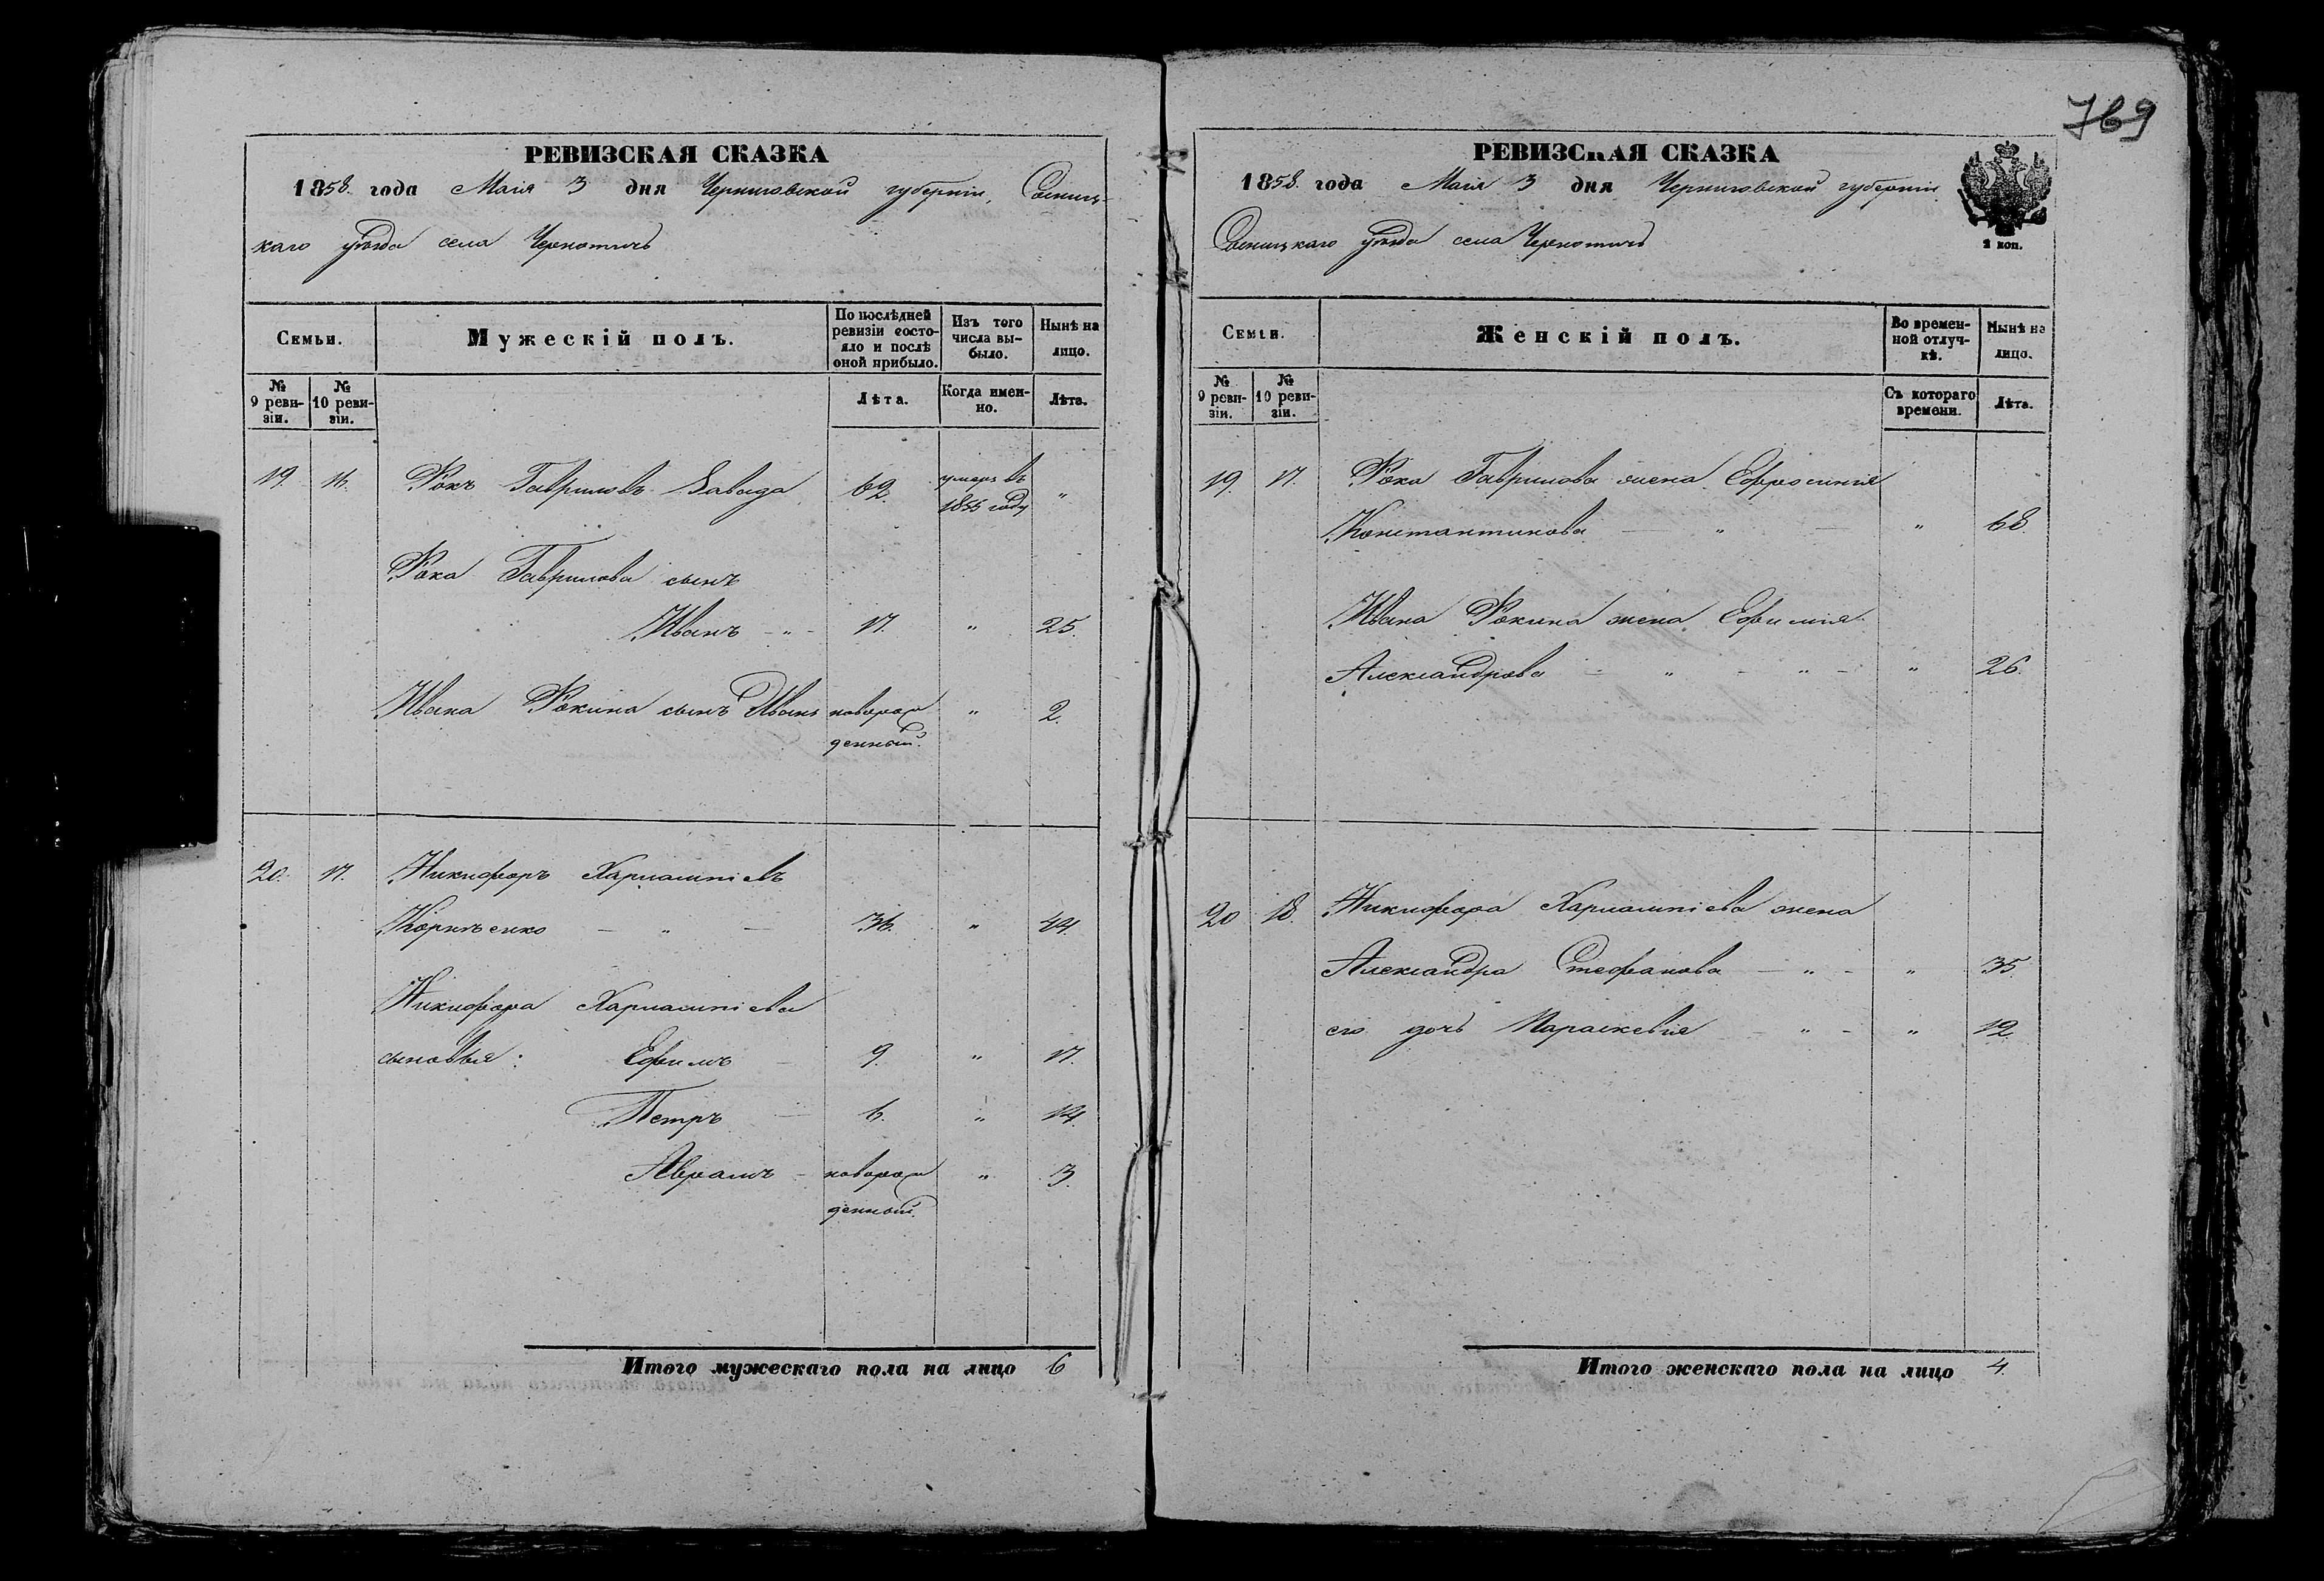 769
РЕВИЗСКАЯ СКАЗКА
1858 года Маія 3 дня Черниговской губерніи, Сосниц-
каго уѣзда села Чернотичъ
Семьи.
Мужескій полъ.
По послѣдней ревизіи состо-
яло и послѣ оной прибыло.
Изъ того числа вы-
было.
Нынѣ на лицо.
№ 9 реви-
зіи.
№ 10 реви-
зіи.
Лѣта.
Когда имен-
но.
Лѣта.
19. 16. Фокъ Гавриловъ Завада 62 умеръ въ "
1855 году
Фока Гаврилова сынъ
Иванъ - " - 17. " 25.
Ивана Фокина сынъ Иванъ новорож " 2.
денный.
20. 17. Никифоръ Харлампіевъ
Корнѣенко — " — 36. " 44.
Никифора Харлампіева
сыновья: Ефимъ — 9. " 17.
Петръ — 6. " 14.
Аврамъ — новорож " 3.
денный.
Итого мужескаго пола на лицо 6
РЕВИЗСКАЯ СКАЗКА
1858. года Маія 3 дня Черниговской губерніи
Сосницкаго уѣзда села Чернотичъ
2 коп.
Семьи.
Женскій полъ.
Во времен-
ной отлуч-
кѣ.
Нынѣ на лицо.
№ 9 реви-
зіи.
№ 10 реви-
зіи.
Съ котораго времени.
Лѣта.
19. 17. Фока Гаврилова жена Ефросинія
Константинова — " — " 68.
Ивана Фокина жена Ефимія
Александрова — " — " — " 26.
20 18. Никифора Харлампіева жена
Александра Стефанова — " — " 35.
его дочь Параскевія — " — " 12.
Итого женскаго пола на лицо 4.